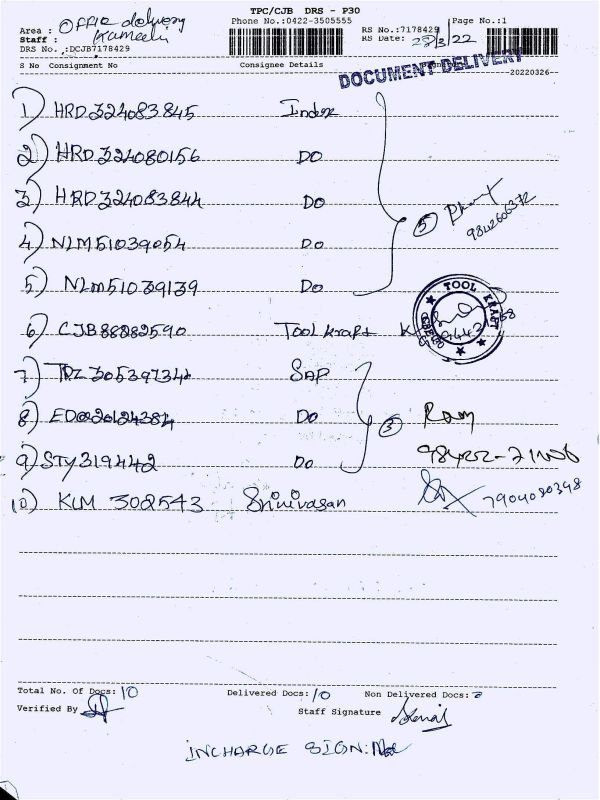 TPC/CJB DRS - P30
Area : Office delivery
Phone No.:0422-3505555
RS No.:7178429
Page No.:1
Staff : Kameeli
RS Date: 28/3/22
DRS No.:DCJB7178429
S No Consignment No Consignee Details
DOCUMENT DELIVERY
-20220326-
1) HRD324083845 Index
2) HRD324080156 DO
3) HRD324083844 DO
4) NLM51039054 Do
5) NLM51039139 Do
(5) 9842606372
6) CJB88882590 Tool Kraft
TOOL KRAFT
7) 305397342 SAP
8) Do
(3) Ram
9) STY319442 Do
10) KLM 302543 Srinivasan 7904080398
Total No. Of Docs: 10 Delivered Docs: 10 Non Delivered Docs:
Verified By Staff Signature
INCHARGE SIGN: